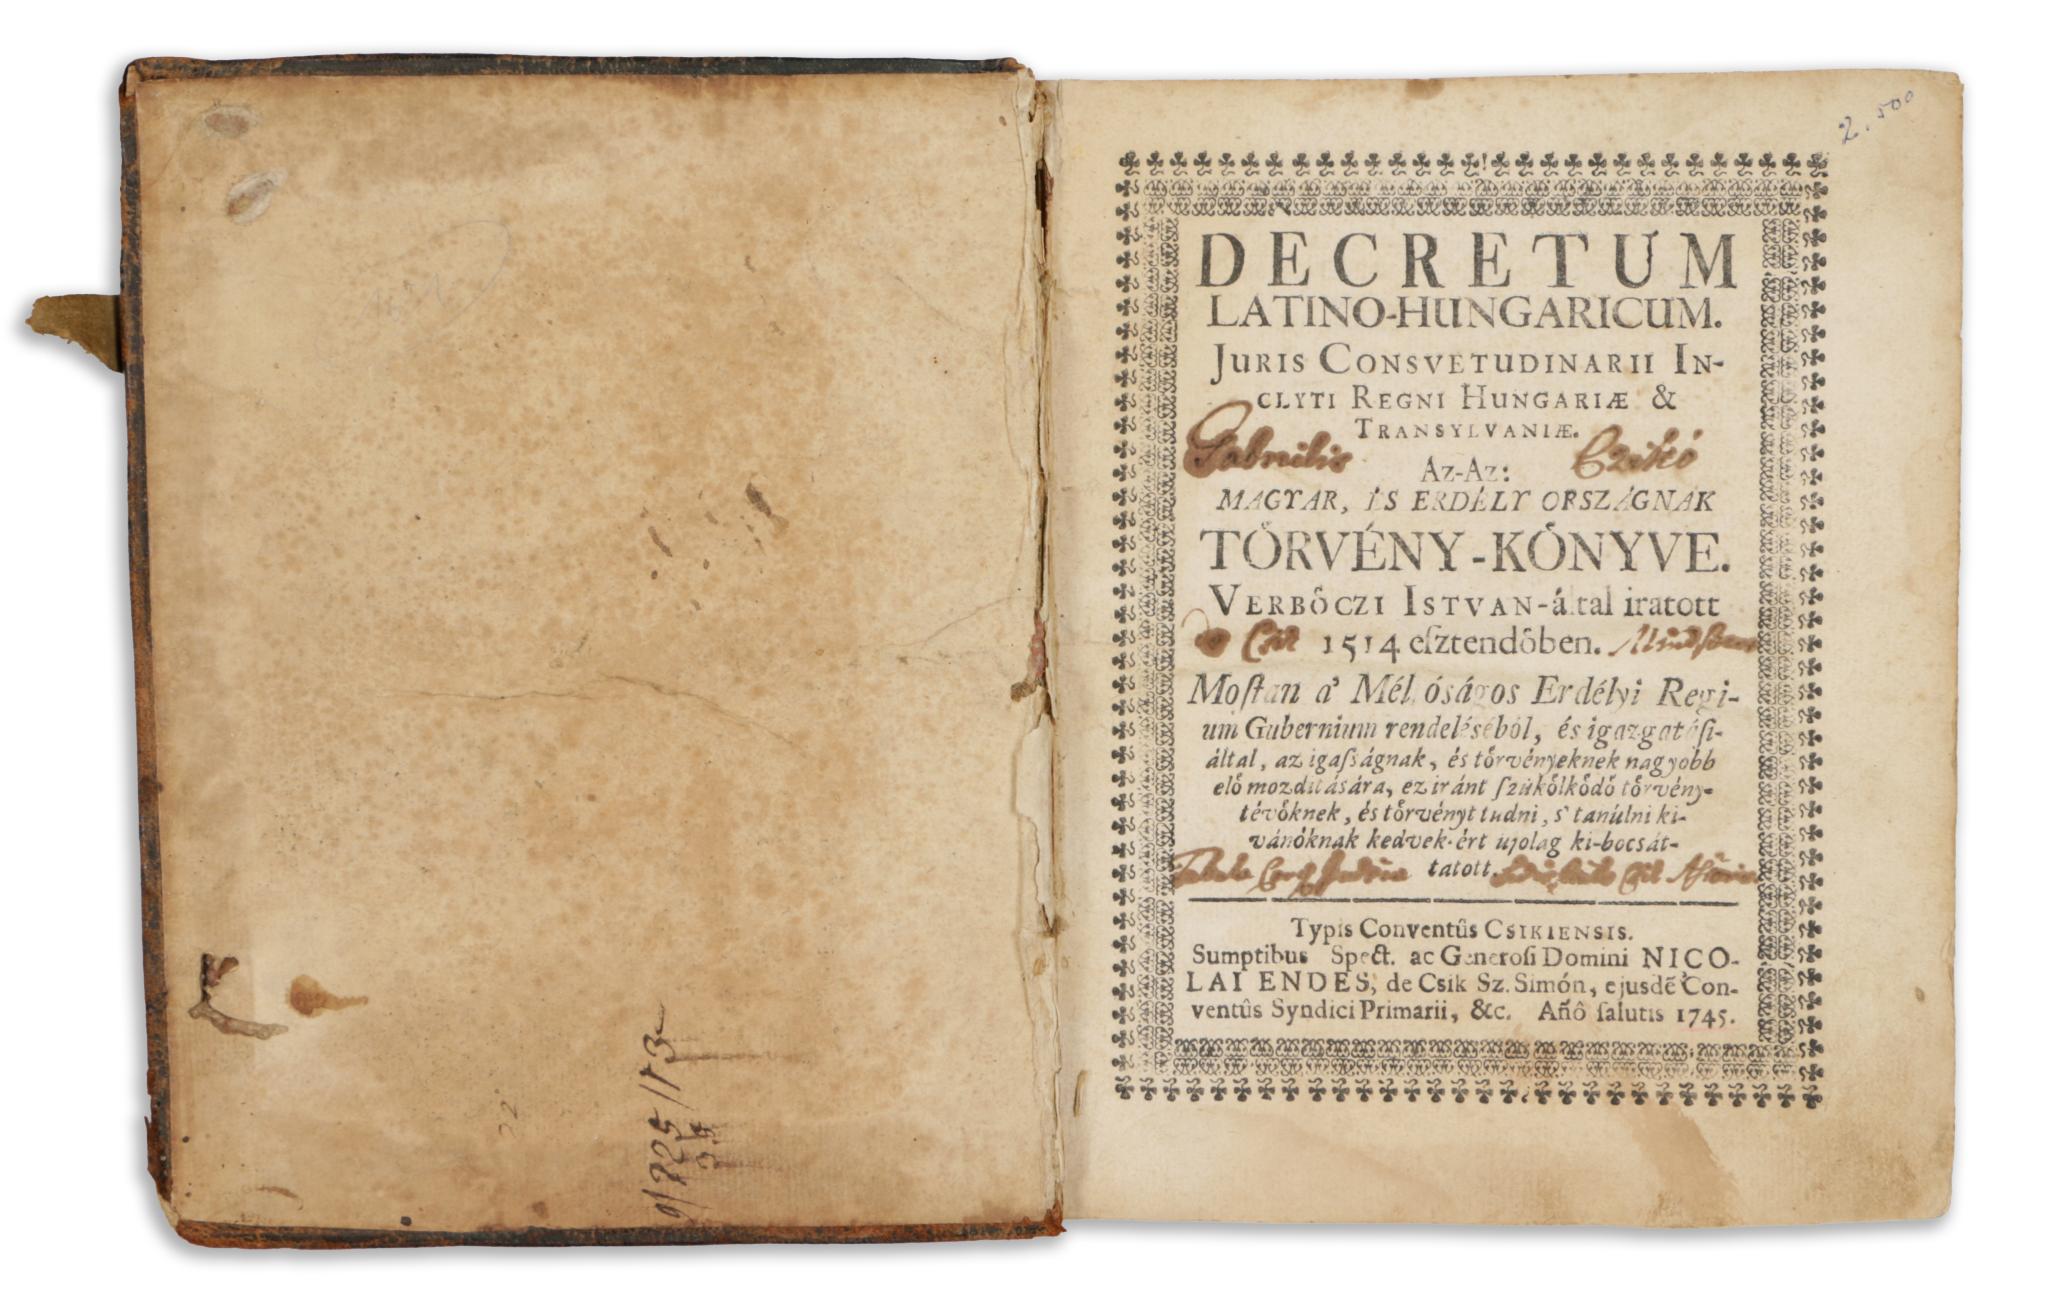 2.500
DECRETUM
LATINO-HUNGARICUM.
JURIS CONSVETUDINARII IN-
CLYTI REGNI HUNGARIÆ &
TRANSYLVANIÆ.
Gabrielis Czikó
AZ-AZ:
MAGYAR, ÉS ERDÉLY ORSZÁGNAK
TŐRVÉNY-KŐNYVE.
VERBŐCZI ISTVAN-által iratott
Csik 1514 eſztendőben.
Moſtan a' Méltóságos Erdélyi Regi-
um Gubernium rendeléséből, és igazgatáſi-
által, az igaſságnak, és tőrvényeknek nagyobb
elő mozdítására, ez iránt ſzűkőlkődő tőrvény-
tévőknek, és tőrvényt tudni, s' tanúlni ki-
vánóknak kedvek-ért ujolag ki-bocsát-
tatott.
Typis Conventûs CSIKIENSIS.
Sumptibus Spect. ac Generoſi Domini NICO-
LAI ENDES, de Csik Sz. Simón, ejusdẽ Con-
ventûs Syndici Primarii, &c. Añô ſalutis 1745.
22